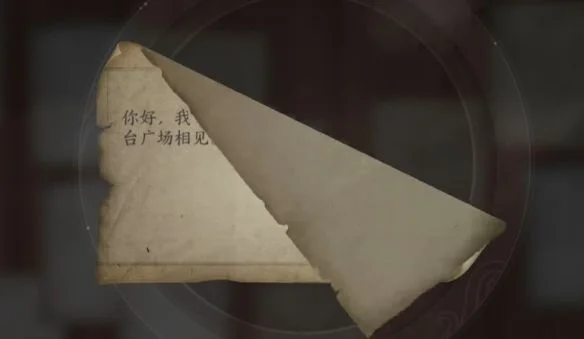 你好，我
台广场相见